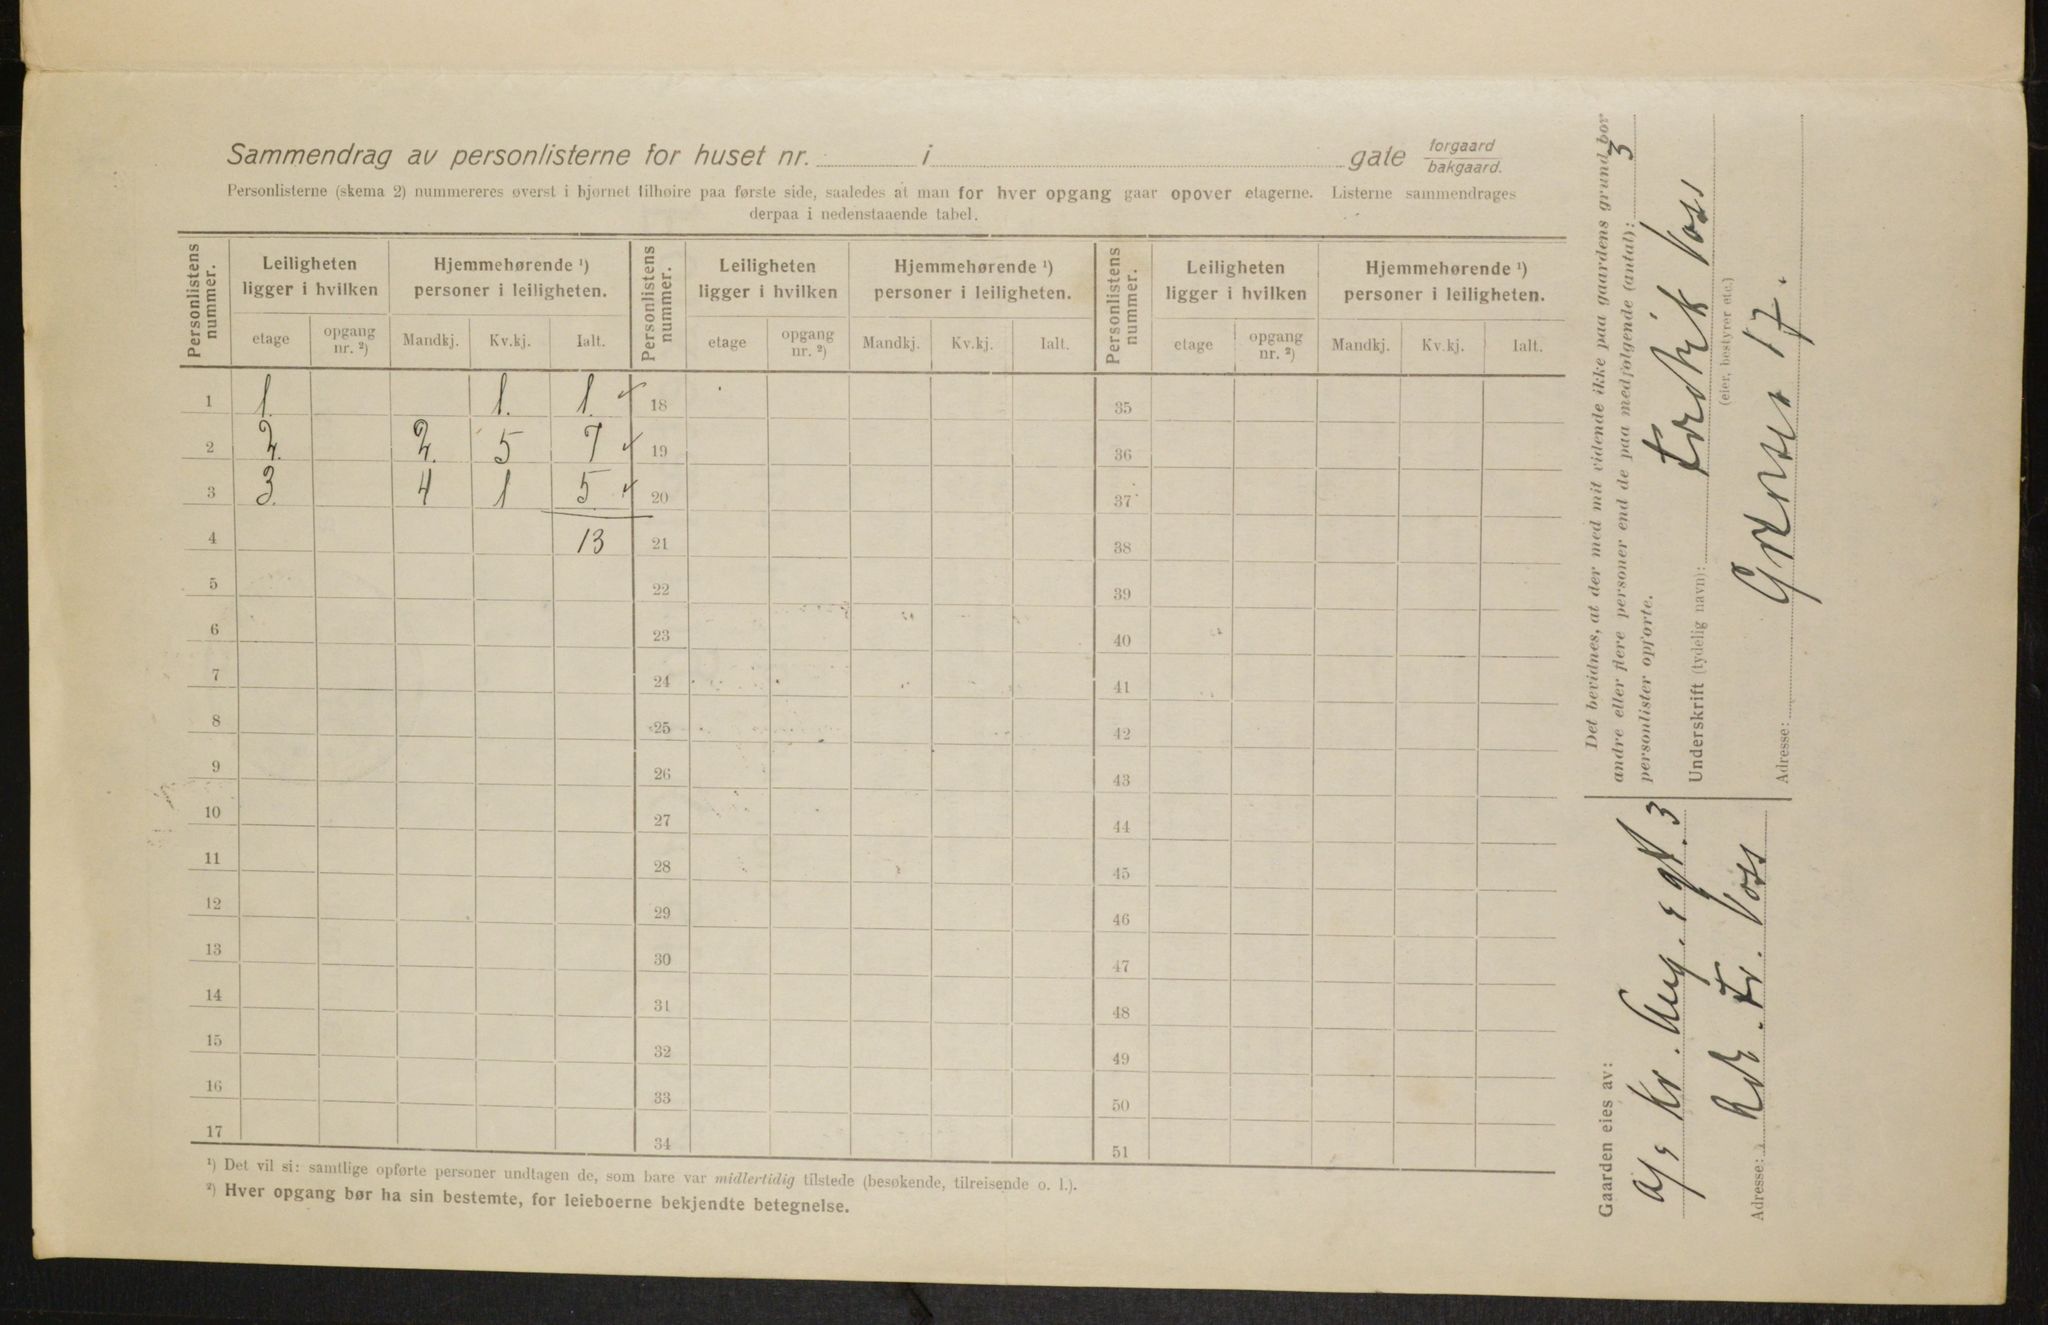 Sammendrag av personlisterne for huset nr. i gate forgaard bakgaard.
Personlisterne (skema 2) nummereres øverst i hjørnet tilhøire paa første side, saaledes at man for hver opgang gaar opover etagerne. Listerne sammendrages
derpaa i nedenstaaende tabel.
Personlistens nummer. Leiligheten ligger i hvilken Hjemmehørende ¹) personer i leiligheten. Personlistens nummer. Leiligheten ligger i hvilken Hjemmehørende ¹) personer i leiligheten. Personlistens nummer. Leiligheten ligger i hvilken Hjemmehørende ¹) personer i leiligheten.
etage opgang nr. ²) Mandkj. Kv.kj. Ialt. etage opgang nr. ²) Mandkj. Kv.kj. Ialt. etage opgang nr. ²) Mandkj. Kv.kj. Ialt.
1 1. 1. 1. 18 35
2 2. 2. 5 7 19 36
3 3. 4 1 5 20 37
4 13 21 38
5 22 39
6 23 40
7 24 41
8 25 42
9 26 43
10 27 44
11 28 45
12 29 46
13 30 47
14 31 48
15 32 49
16 33 50
17 34 51
¹) Det vil si: samtlige opførte personer undtagen de, som bare var midlertidig tilstede (besøkende, tilreisende o. l.).
²) Hver opgang bør ha sin bestemte, for leieboerne bekjendte betegnelse.
Det bevidnes, at der med mit vidende ikke paa gaardens grund bor
andre eller flere personer end de paa medfølgende (antal): 3
personlister opførte.
Underskrift (tydelig navn): Fredrik Voss
(eier, bestyrer etc.)
Adresse: Grænsen 17.
Gaarden eies av:
A/s Kr. Aug. s gt. 3
Adresse: Fr. Voss